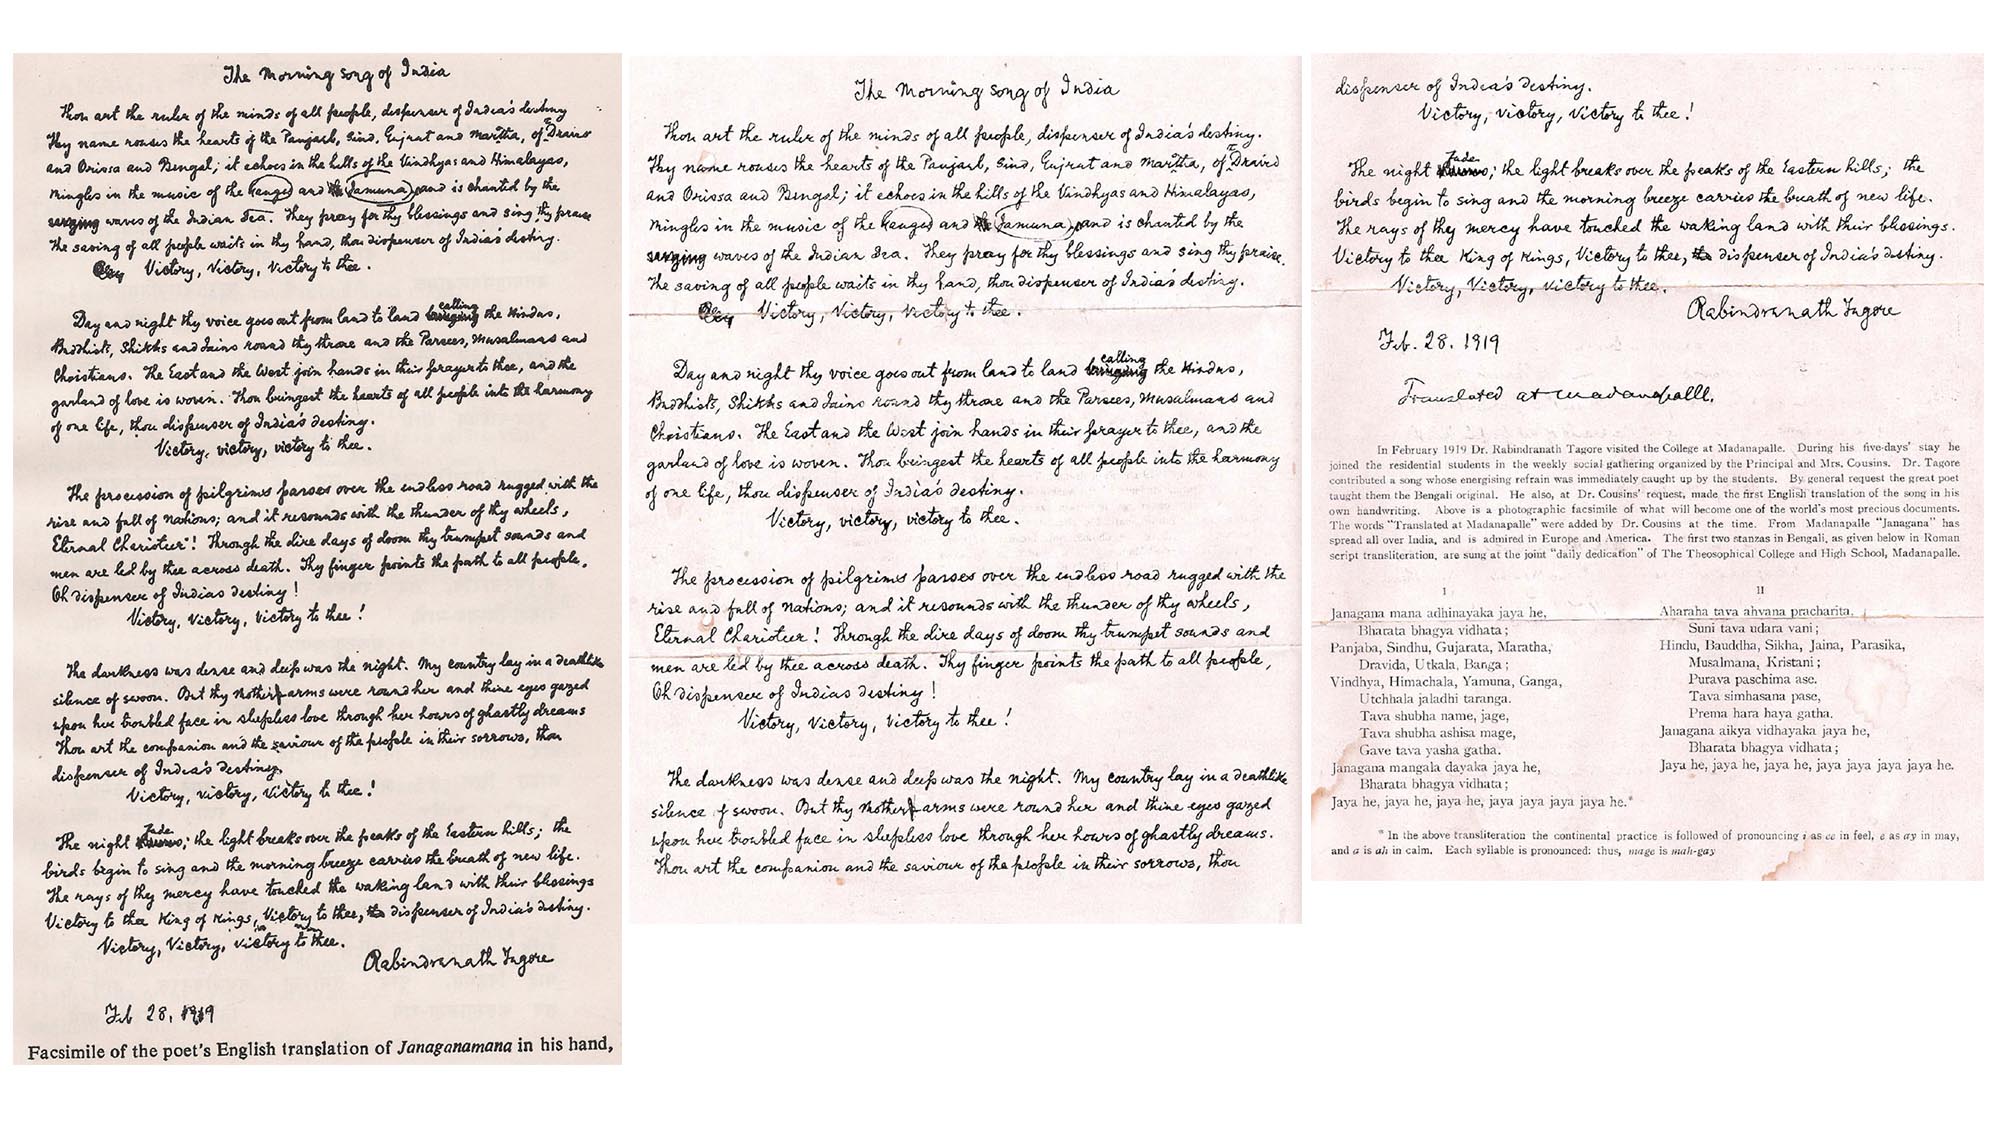 The Morning Song of India
Thou art the ruler of the minds of all people, dispenser of India's destiny
Thy name rouses the hearts of the Panjarb, Sind, Gujrat and Maratha, of Dravid
and Orissa and Bengal; it echoes in the hills of the Vindhyas and Himalayas,
mingles in the music of the Ganges and Jamuna, and is chanted by the
surging waves of the Indian Sea. They pray for thy blessings and sing thy praise
The saving of all people waits in thy hand, thou dispenser of India's destiny.
Victory, Victory, Victory to thee.
Day and night thy voice goes out from land to land calling the Hindus,
Buddhists, Shikhs and Jains round thy throne and the Parsees, Musalmans and
Christians. The East and the West join hands in their prayer to thee, and the
garland of love is woven. Thou bringest the hearts of all people into the harmony
of one life, thou dispenser of India's destiny.
Victory, victory, victory to thee.
The procession of pilgrims passes over the endless road rugged with the
rise and fall of nations; and it resounds with the thunder of thy wheels,
Eternal Charioteer! Through the dire days of doom thy trumpet sounds and
men are led by thee across death. Thy finger points the path to all people.
Oh dispenser of Indias destiny!
Victory, Victory, Victory to thee!
The darkness was dense and deep was the night. My country lay in a deathlike
silence of swoon. But thy Mother arms were round her and thine eyes gazed
upon her troubled face in sleepless love through her hours of ghastly dreams
Thou art the companion and the saviour of the people in their sorrows, thou
dispenser of India's destiny.
Victory, victory, Victory to thee!
The night fade; the light breaks over the peaks of the Eastern hills; the
birds begin to sing and the morning breeze carries the breath of new life.
The rays of thy mercy have touched the waking land with their blessings
Victory to thee King of Kings, Victory to thee, dispenser of India's destiny.
Victory, Victory, victory to thee.
Rabindranath Tagore
Feb 28, 1919
Facsimile of the poet's English translation of Janaganamana in his hand,
The Morning Song of India
Thou art the ruler of the minds of all people, dispenser of India's destiny.
Thy name rouses the hearts of the Panjarb, Sind, Gujrat and Maratha, of Dravid
and Orissa and Bengal; it echoes in the hills of the Vindhyas and Himalayas,
mingles in the music of the Ganges and Jamuna, and is chanted by the
surging waves of the Indian Sea. They pray for thy blessings and sing thy praise.
The saving of all people waits in thy hand, thou dispenser of India's destiny.
Victory, Victory, Victory to thee.
Day and night thy voice goes out from land to land calling the Hindus,
Buddhists, Shikhs and Jains round thy throne and the Parsees, Musalmans and
Christians. The East and the West join hands in their prayer to thee, and the
garland of love is woven. Thou bringest the hearts of all people into the harmony
of one life, thou dispenser of India's destiny.
Victory, victory, victory to thee.
The procession of pilgrims passes over the endless road rugged with the
rise and fall of nations; and it resounds with the thunder of thy wheels,
Eternal Charioteer! Through the dire days of doom thy trumpet sounds and
men are led by thee across death. Thy finger points the path to all people,
Oh dispenser of Indias destiny!
Victory, Victory, Victory to thee!
The darkness was dense and deep was the night. My country lay in a deathlike
silence of swoon. But thy Mother arms were round her and thine eyes gazed
upon her troubled face in sleepless love through her hours of ghastly dreams.
Thou art the companion and the saviour of the people in their sorrows, thou
dispenser of India's destiny.
Victory, victory, Victory to thee!
The night fade; the light breaks over the peaks of the Eastern hills; the
birds begin to sing and the morning breeze carries the breath of new life.
The rays of thy mercy have touched the waking land with their blessings.
Victory to thee King of Kings, Victory to thee, dispenser of India's destiny.
Victory, Victory, victory to thee.
Rabindranath Tagore
Feb. 28. 1919
Translated at Madanapalle.
In February 1919 Dr. Rabindranath Tagore visited the College at Madanapalle. During his five-days' stay he
joined the residential students in the weekly social gathering organized by the Principal and Mrs. Cousins. Dr. Tagore
contributed a song whose energising refrain was immediately caught up by the students. By general request the great poet
taught them the Bengali original. He also, at Dr. Cousins' request, made the first English translation of the song in his
own handwriting. Above is a photographic facsimile of what will become one of the world's most precious documents.
The words "Translated at Madanapalle" were added by Dr. Cousins at the time. From Madanapalle "Janagana" has
spread all over India, and is admired in Europe and America. The first two stanzas in Bengali, as given below in Roman
script transliteration, are sung at the joint "daily dedication" of The Theosophical College and High School, Madanapalle.
I
Janagana mana adhinayaka jaya he,
Bharata bhagya vidhata;
Panjaba, Sindhu, Gujarata, Maratha,
Dravida, Utkala, Banga;
Vindhya, Himachala, Yamuna, Ganga,
Utchhala jaladhi taranga.
Tava shubha name, jage,
Tava shubha ashisa mage,
Gave tava yasha gatha.
Janagana mangala dayaka jaya he,
Bharata bhagya vidhata;
Jaya he, jaya he, jaya he, jaya jaya jaya jaya he.*
II
Aharaha tava ahvana pracharita,
Suni tava udara vani;
Hindu, Bauddha, Sikha, Jaina, Parasika,
Musalmana, Kristani;
Purava paschima ase.
Tava simhasana pase,
Prema hara haya gatha.
Janagana aikya vidhayaka jaya he,
Bharata bhagya vidhata;
Jaya he, jaya he, jaya he, jaya jaya jaya jaya he.
* In the above transliteration the continental practice is followed of pronouncing i as ee in feel, e as ay in may,
and a is ah in calm. Each syllable is pronounced: thus, mage is mah-gay